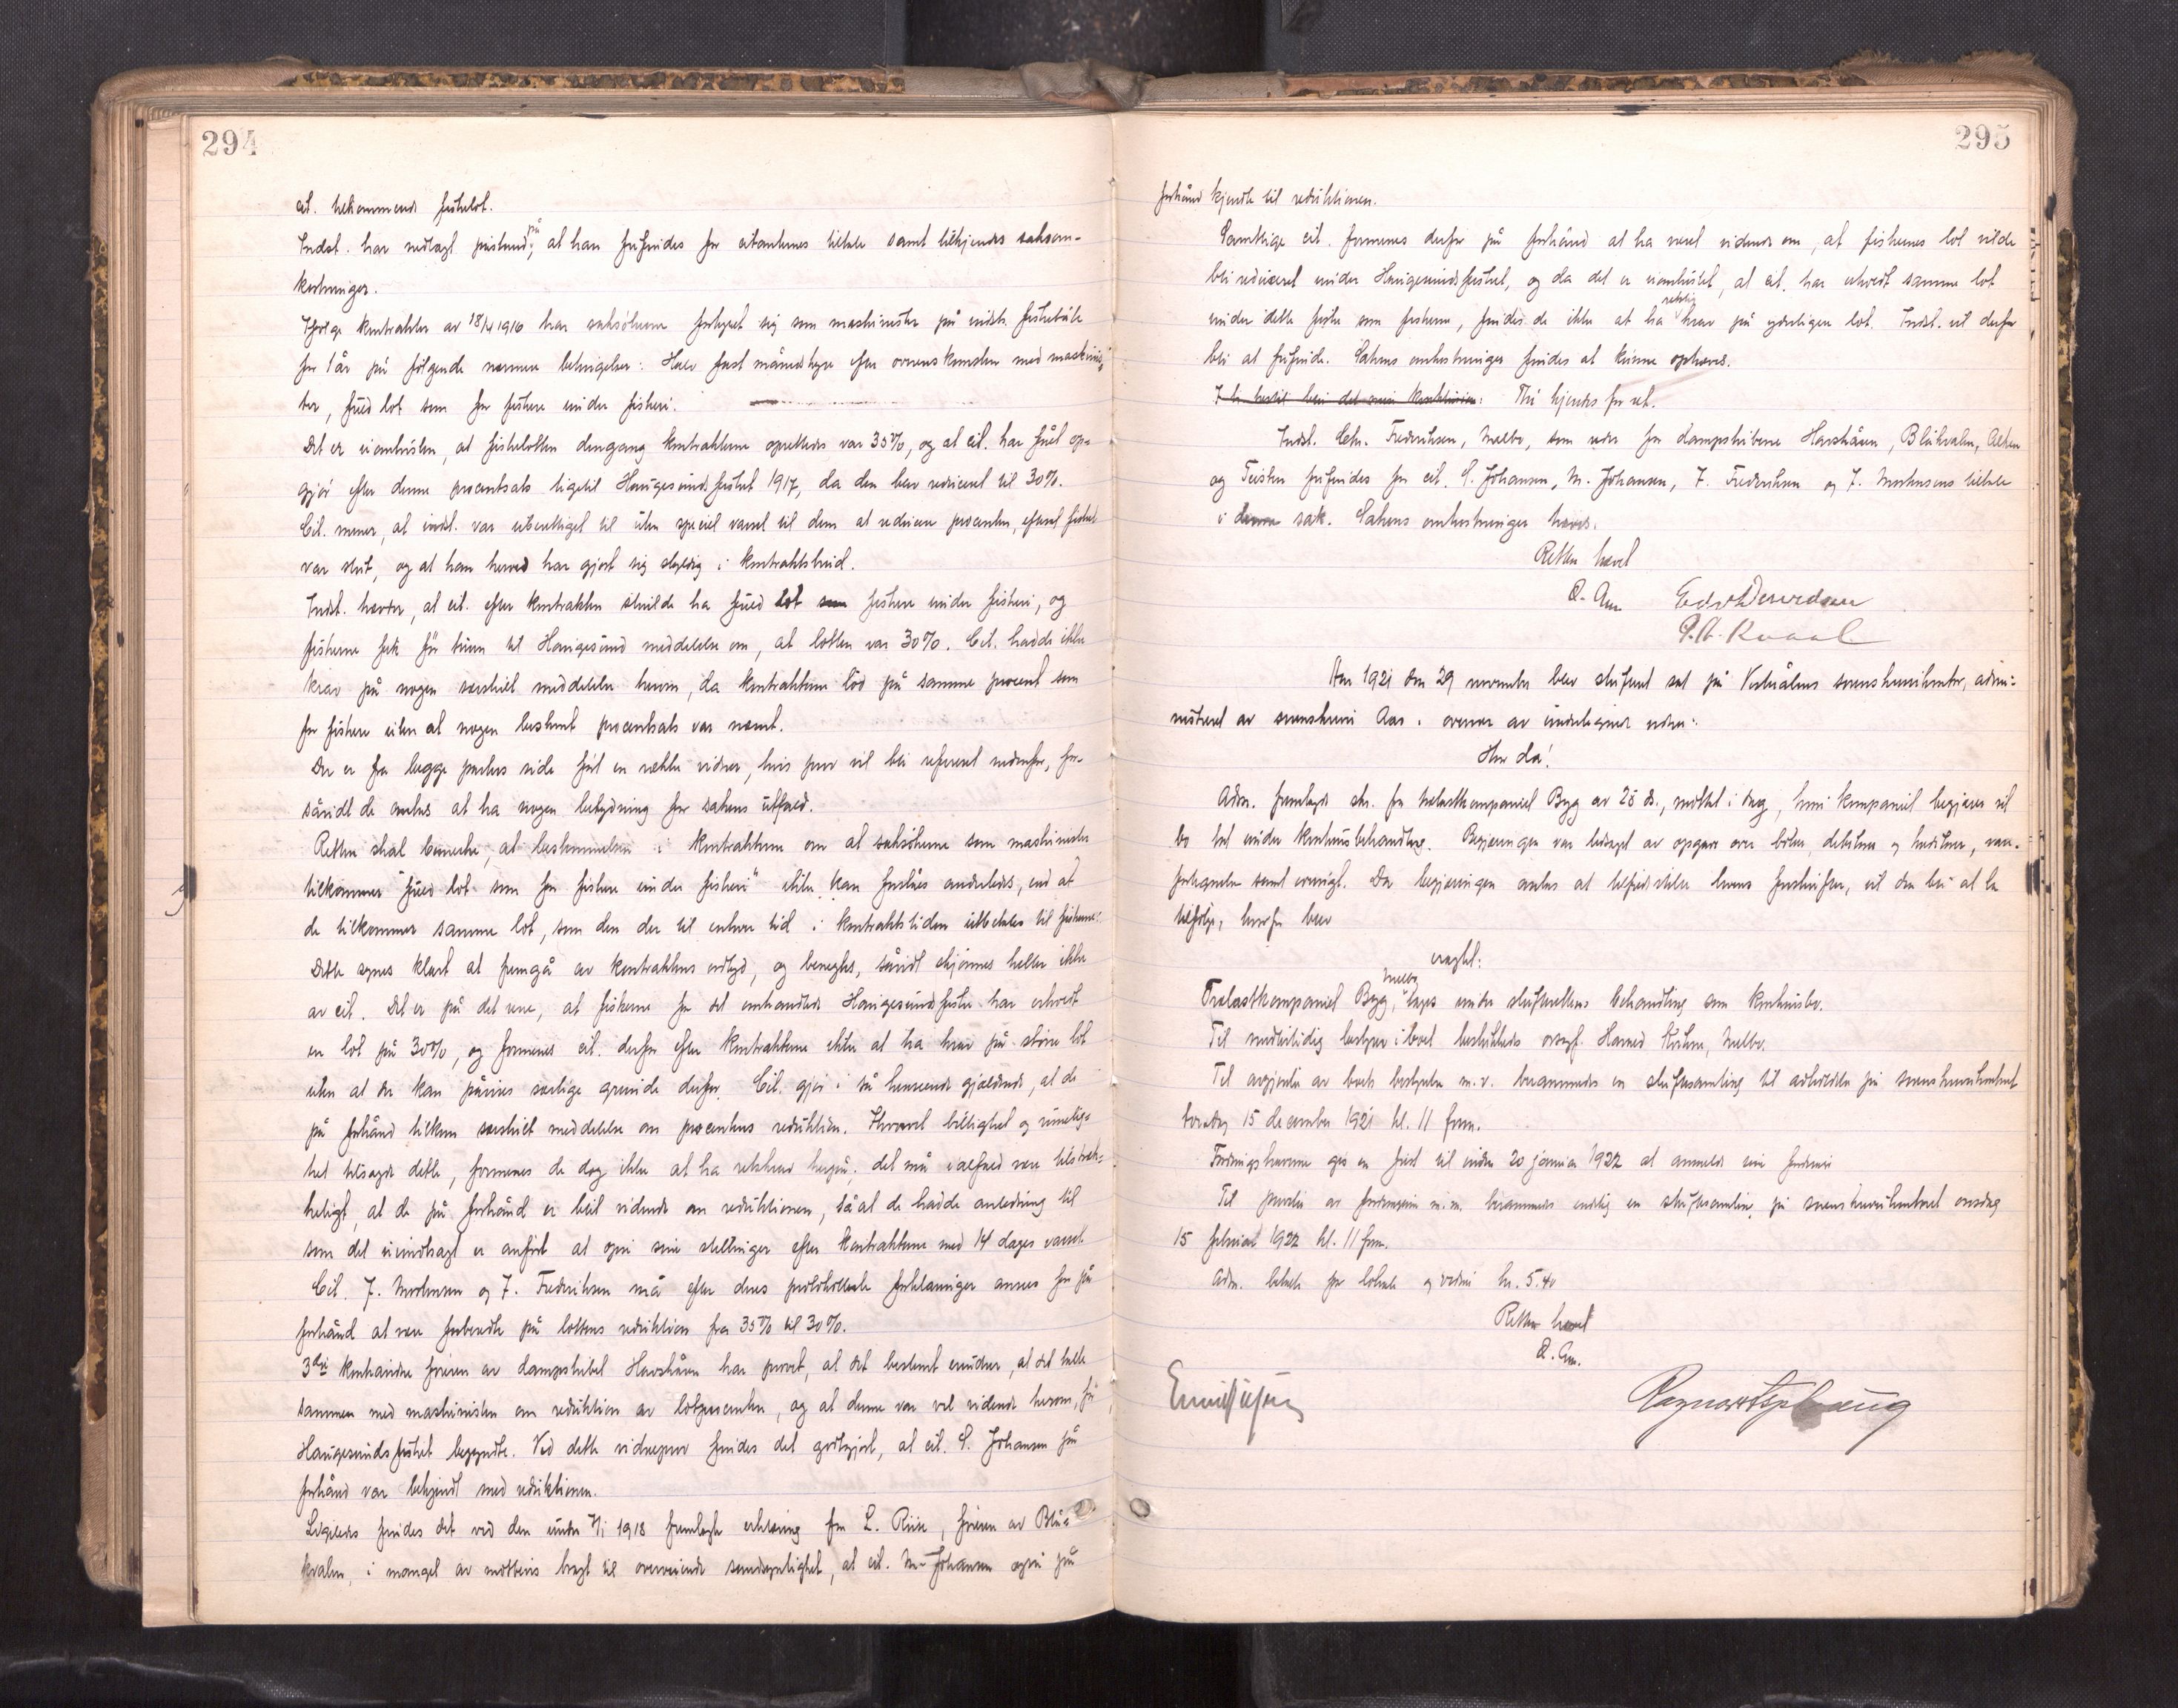 294
cit. tilkommende fiskelot.
Indst. har nedlagt påstand på, at han frifindes for citantenes tiltale samt tilkjendes saksom-
kostninger.
Ifølge kontrakter av 18/4 1916 har saksøkerne forhyret sig som maskinister på indst. fiskebåte
for 1 år på følgende nærmere betingelser: Halv fast månedshyre efter overenskomsten med maskinis-
ter, fuld lot som for fiskere under fiskeri.
Det er uomtvistet, at fiskelotten dengang kontrakterne oprettedes var 35%, og at cit. har fåt op-
gjør efter denne procentsats liketil Haugesundsfisket 1917, da den blev reducert til 30%.
Cit. mener, at indst. var uberettiget til uten speciel varsel til dem at reducere procenten, efterat fisket
var slut, og at han herved har gjort sig skyldig i kontraktsbrud.
Indst. hævder, at cit. efter kontrakten skulde ha fuld lot som fiskere under fiskeri, og
fiskerne fik før turen til Haugesund meddelelse om, at lotten var 30%. Cit. hadde ikke
krav på nogen særskilt meddelelse herom, da kontrakterne lød på samme procent som
for fiskere uten at nogen bestemt procentsats var nævnt.
Der er fra begge parters side ført en række vidner, hvis prov vil bli referert nedenfor, for-
såvidt de antas at ha nogen betydning for sakens utfald.
Retten skal bemerke, at bestemmelsen i kontrakterne om at saksøkerne som maskinister
tilkommer "fuld lot som for fiskere under fiskeri" ikke kan forståes anderledes, end at
de tilkommer samme lot, som den der til enhver tid i kontraktstiden utbetales til fiskerne.
Dette synes klart at fremgå av kontraktens ordlyd, og benegtes, såvidt skjønnes heller ikke
av cit. Det er på det rene, at fiskerne for det omhandlede Haugesundsfiske har erhvert
en lot på 30%, og formenes cit. derfor efter kontrakterne ikke at ha krav på større lot
uten at der kan påvises særlige grunde derfor. Cit. gjør i så henseende gjældende, at de
på forhånd tilkom særskilt meddelelse om procentens reduktion. Hvorvel billighet og rimelig-
het tilsagde dette, formenes de dog ikke at ha retskrav herpå; det må i alfald være tilstræk-
keligt, at de på forhånd er blit vidende om reduktionen, så at de hadde anledning til
som det uimotsagt er anført at opsi sine stillinger efter kontrakterne med 14 dages varsel.
Cit. J. Mortensen og J. Fredriksen må efter deres protokollerte forklaringer ansees for på
forhånd at være forberedte på lottens reduktion fra 35% til 30%.
3die kontrahent føreren av dampskibet Havskåren har provet, at det bestemt erindrer, at det talte
sammen med maskinisten om reduktion av lotprocenten, og at denne var vel vidende herom, før
Haugesundsfisket begyndte. Ved dette vidneprov findes det godtgjort, at cit. S. Johansen på
forhånd var bekjendt med reduktionen.
Ligeledes findes det ved den under 7/1 1918 fremlagte erklæring fra L. Riise, føreren av Blå-
kvalen, i mangel av motbevis bragt til overveiende sandsynlighet, at cit. M. Johansen også på
295
forhånd kjendte til reduktionen.
Samtlige cit. formenes derfor på forhånd at ha været vidende om, at fiskernes lot vilde
bli reducert under Haugesundsfisket, og da det er uomtvistet, at cit. har erhvert samme lot
under dette fiske som fiskerne, findes de ikke at ha retslig krav på yderligere lot. Indst. vil derfor
bli at frifinde. Sakens omkostninger findes at kunne ophæves.
Thi kjendes for ret.
Indst. Chr. Frederiksen, Melbo, som reder for dampskibene Havskåren, Blåkvalen, Alken
og Teisten frifindes for cit. S. Johansen, M. Johansen, J. Frederiksen og J. Mortensens tiltale
i denne sak. Sakens omkostninger hæves.
Retten hævet
O. Aar
Aar 1921 den 29 november blev skifteret sat på Vesterålens sorenskriverkontor, admi-
nistreret av sorenskriver Aar i overvær av undertegnede vidner:
Hvor da!
Adm. fremlagde skr. fra Trælastkompaniet Byg av 28 ds., mottat i dag, hvori kompaniet begjærer sit
bo tat under konkursbehandling. Begjæringen var ledsaget av opgave over bøker, debitorer og kreditorer, vare-
fortegnelse samt oversigt. Da begjæringen antas at tilfredsstille lovens forskrifter, vil den bli at ta
tilfølge, hvorfor blev
eragtet:
Trælastkompaniet Byg, Melbo tages under skifterettens behandling som konkursbo.
Til midlertidig bestyrer i boet beskikkedes overretssakf. Harald Melbo.
Til avgjørelse av boets bestyrelse m.v. berammedes en skiftesamling til avholdelse på sorenskriverkontoret
torsdag 15 december 1921 kl. 11 form.
Fordringshaverne gis en frist til inden 20 januar 1922 at anmelde sine fordringer
Til prøvelse av fordringerne m.m. berammedes endelig en skiftesamling på sorenskriverkontoret onsdag
15 februar 1922 kl. 11 form.
Adm. betalte for lokale og vidner kr. 5.40
Retten hævet
O. Aar.